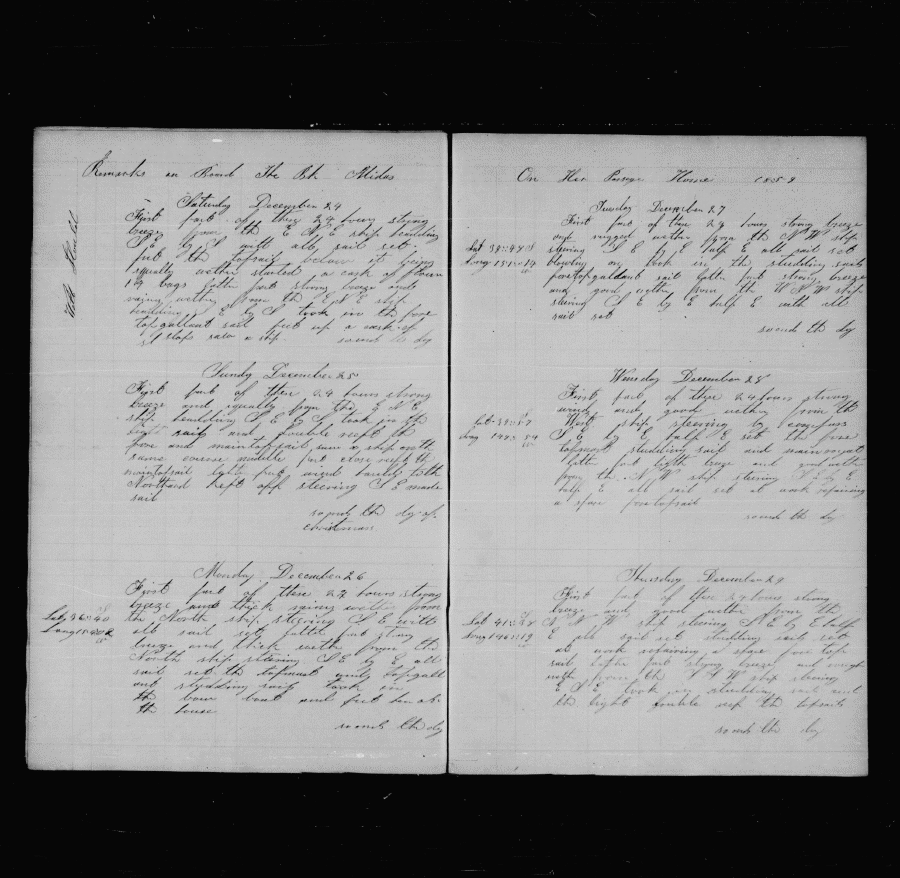 Remarks on Board The Bk Midas
Saturday December 24
First part of these 24 hours strong
breeze from the E N E ship heading
S E by S with all sail set
put the topsail below it being
squally wether started a cask of flower
12 bags latter part strong breeze and
wether from the E N E ship
heading S E by S took in the fore
topgallant sail put up a cask of
slops saw a ship so ends the dy
Sundy December 25
First part of these 24 hours strong
breeze and squally from the E N E
ship heading S E by S took in the
light sails and double reeft the
fore and maintopsail saw a ship on the
same course middle part close reeft the
maintopsail lghte part wind to the
Northard kept off steering S E made
sail
so ends the dy of
christmas
Monday December 26
First part of these 24 hours strong
breeze and thick rainy wether from
the North ship steering S E with
all sail set latter part strong
breeze and thick wether from the
North ship steering S E by E all
sail set the topmast and topgall
ant studding sails took in
the bow boat and put her on
the house
so ends the dy
Lat 36:40
Long
On Her Passage Home 1859
Tuesday December 27
First part of these 24 hours strong breeze
and rugged wether from the N W ship
steering S E by E half E all sail set
blowing on took in the studding sails
foretopgallant sail latter part strong breeze
and good wether from the W N W ship
steering S E by E half E with all
sail set
so ends the dy
Lat 38:48 S
Long 151:19
Wensday December 28
First part of these 24 hours strong
wind and good wether from the
West ship steering by compass
S E by E half E set the fore
topmast studding sail and main royal
latter part ligth breeze and good wether
from the N W ship steering S E by E
half E all sail set at work repairing
a spare foretopsail
so ends the dy
Lat 39:57
Long 149:54
Thursday December 29
First part of these 24 hours strong
breeze and good wether from the
N N W ship steering S E by E half
E all sail set studding sails set
at work repairing a spare fore top
sail latter part strong breeze and rough
wether from the N W ship steering
E S E took in studding sails and
the light double reeft the topsails
so ends the dy
Lat 41:28
Long 146:19